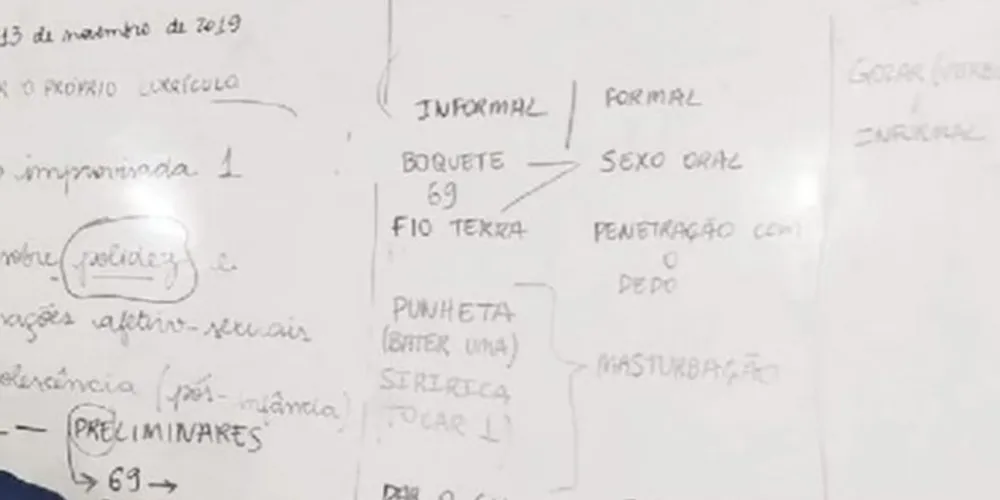 13 de novembro de 2019
R O PRÓPRIO CURRÍCULO
o improvisada 1
sobre polidez e
rações afetivo-sexuais
olescência (pós-infância)
— PRELIMINARES
↳ 69 →
INFORMAL | FORMAL
BOQUETE — SEXO ORAL
69
FIO TERRA PENETRAÇÃO COM
O
DEDO
PUNHETA
(BATER UMA)
SIRIRICA
TOCAR 1)
MASTURBAÇÃO
DAR O
GOZAR (VERB
INFORMAL